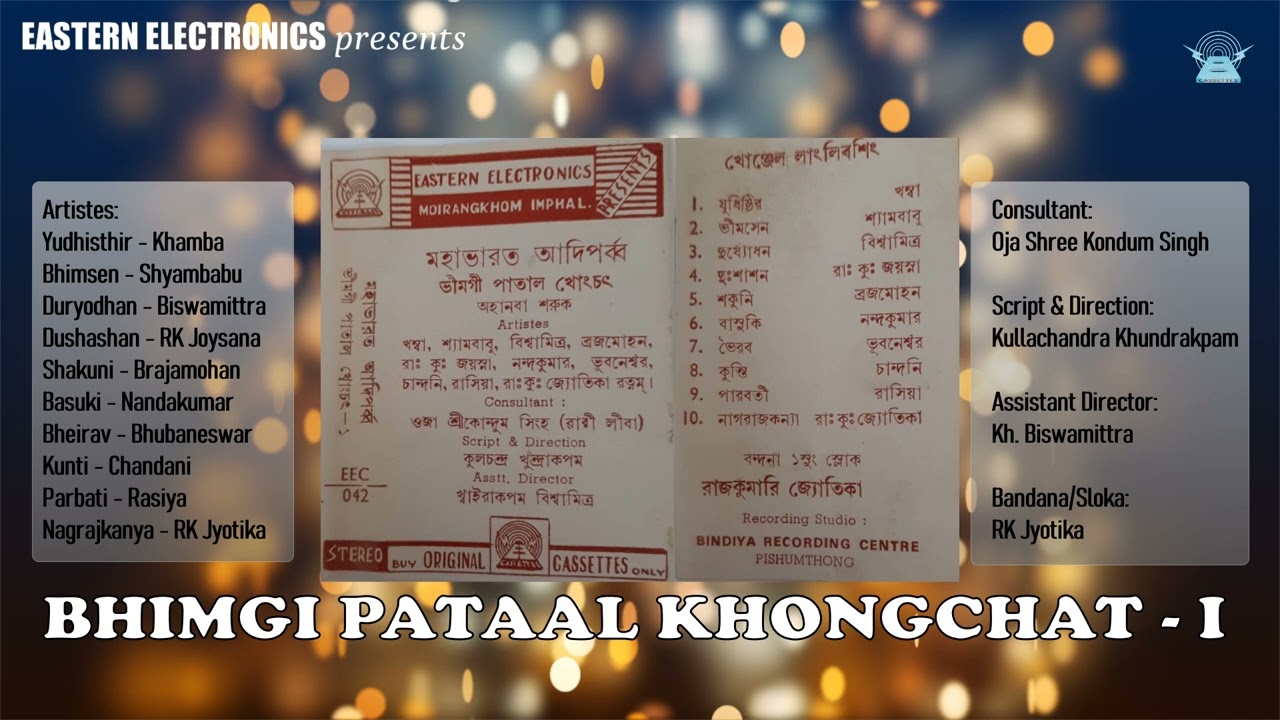 EASTERN ELECTRONICS presents
CASSETTES
Artistes:
Yudhisthir - Khamba
Bhimsen - Shyambabu
Duryodhan - Biswamittra
Dushashan - RK Joysana
Shakuni - Brajamohan
Basuki - Nandakumar
Bheirav - Bhubaneswar
Kunti - Chandani
Parbati - Rasiya
Nagrajkanya - RK Jyotika
EASTERN ELECTRONICS
MOIRANGKHOM IMPHAL.
PRESENTS
মহাভারত আদিপর্ব্ব
ভীমগী পাতাল খোংচৎ
অহানবা শরুক
Artistes
খম্বা, শ্যামবাবু, বিশ্বামিত্র, ব্রজমোহন,
রাঃ কুঃ জয়স্না, নন্দকুমার, ভূবনেশ্বর,
চান্দনি, রাসিয়া, রাঃকুঃ জ্যোতিকা রত্নম্।
Consultant :
ওজা শ্রীকোন্দুম সিংহ
Script & Direction
কুলচন্দ্র খুন্দ্রাকপম
Asstt. Director
খ্বাইরাকপম বিশ্বামিত্র
মহাভারত আদিপর্ব্ব
ভীমগী পাতাল খোংচৎ-১
EEC
042
STEREO BUY ORIGINAL CASSETTES ONLY
থোঞ্জেল লাংলিবশিং
1. যুধিষ্ঠির খম্বা
2. ভীমসেন শ্যামবাবু
3. দুর্য্যোধন বিশ্বামিত্র
4. দুঃশাশন রাঃ কুঃ জয়স্না
5. শকুনি ব্রজমোহন
6. বাসুকি নন্দকুমার
7. ভৈরব ভূবনেশ্বর
8. কুন্তি চান্দনি
9. পারবতী রাসিয়া
10. নাগরাজকন্যা রাঃকুঃজ্যোতিকা
বন্দনা ১সুং স্লোক
রাজকুমারি জ্যোতিকা
Recording Studio :
BINDIYA RECORDING CENTRE
PISHUMTHONG
Consultant:
Oja Shree Kondum Singh
Script & Direction:
Kullachandra Khundrakpam
Assistant Director:
Kh. Biswamittra
Bandana/Sloka:
RK Jyotika
BHIMGI PATAAL KHONGCHAT - I